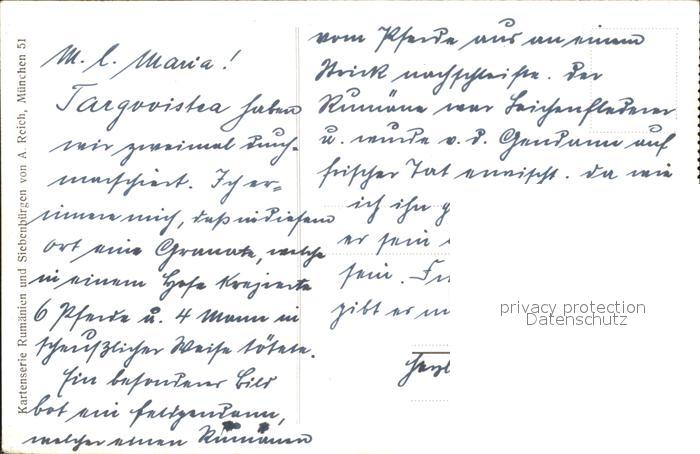 Kartenserie Rumänien und Siebenbürgen von A. Reich, München 51
M. l. Maria!
Targovistea haben
wir zweimal durch-
marschiert. Ich er-
innere mich, daß in diesem
Ort eine Granate, welche
in einem Hofe krepierte
6 Pferde u. 4 Mann in
scheußlicher Weise tötete.
Ein besonderes Bild
bot ein Feldgendarm,
welcher einen Rumänen
vom Pferde aus an einem
Strick nachschleifte. Der
Rumäne war Leichenfledderer
u. wurde v. d. Gendarm auf
frischer Tat erwischt. Da wie
ich ihn
er sein
sein.
gibt es
privacy protection
Datenschutz